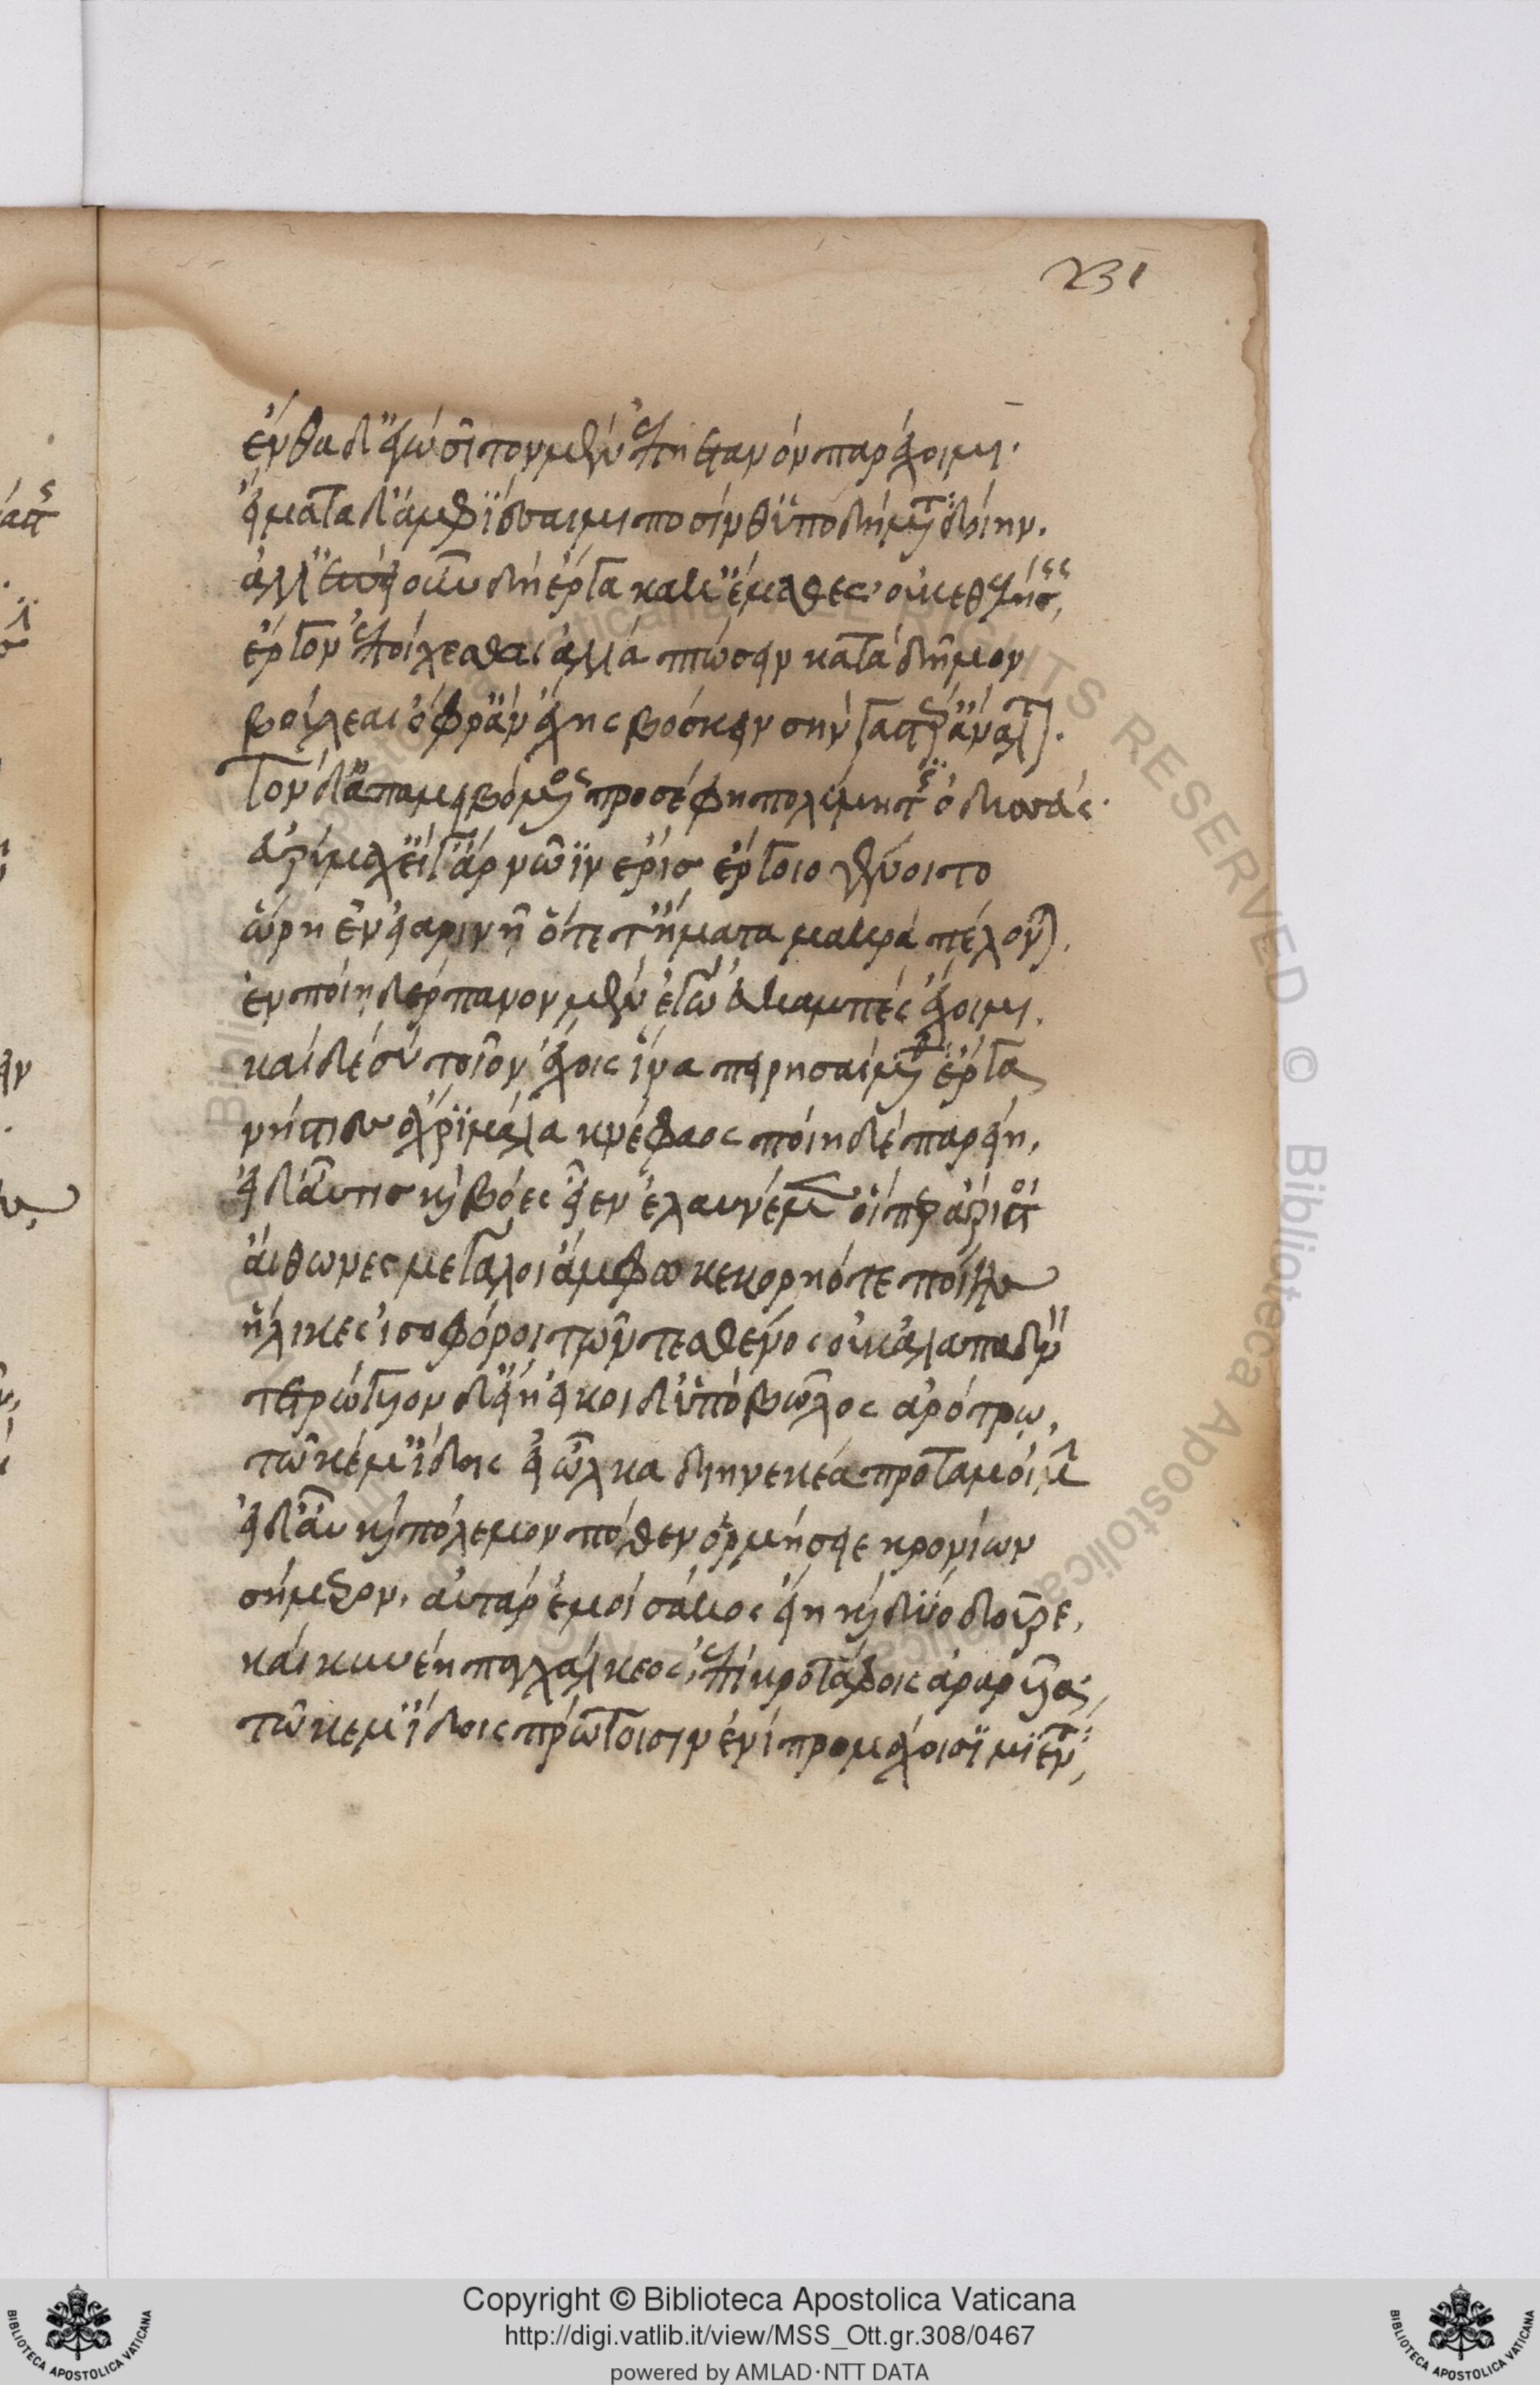 231
ἔνθα δ' ἐγὼ σῖτον μὲν ἐπηετανὸν παρέχοιμι.
εἵματα δ' ἀμφιέσαιμι ποσίν θ' ὑποδήματα δοίην.
ἀλλ' ἐπεὶ οὖν δὴ ἔργα κάκ' ἔμαθες, οὐκ ἐθελήσεις
ἔργον ἐποίχεσθαι ἀλλὰ πτώσσειν κατὰ δῆμον
βούλεαι ὄφρ' ἂν ἔχης βόσκειν σὴν γαστέρ' ἄναλτον.
τὸν δ' ἀπαμειβόμενος προσέφη πολύμητις ὀδυσσεύς.
εὐρύμαχ' εἰ γὰρ νῶϊν ἔρις ἔργοιο γένοιτο
ὥρη ἐν εἰαρινῆ ὅτε τ' ἤματα μακρὰ πέλονται.
ἐν ποίη δρέπανον μὲν ἐγὼν εὐκαμπὲς ἔχοιμι.
καὶ δὲ σὺ τοῖον ἔχοις ἵνα πειρησαίμεθα ἔργου
νήστιες ἄχρι μάλα κνέφαος ποίη δὲ παρείη.
εἰ δ' αὖ τις καὶ βόες εἶεν ἐλαυνέμεν οἵπερ ἄριστοι
αἴθωνες μεγάλοι ἄμφω κεκορηότε ποίης
ἥλικες ἰσοφόροι τῶν τε σθένος οὐκ ἀλαπαδνόν
τετράγυον δ' εἴη εἴκοι δ' ὑπὸ βῶλος ἀρότρω.
τῶ κέ μ' ἴδοις εἰ ὦλκα διηνεκέα προταμοίμην
εἰ δ' αὖ καὶ πόλεμον ποθὲν ὁρμήσειε κρονίων
σήμερον. αὐτὰρ ἐμοὶ σάκος εἴη καὶ δύο δοῦρε.
καὶ κυνέη παγχάλκεος, ἐπὶ κροτάφοις ἀραρυῖα,
τῶ κέ μ' ἴδοις πρώτοισιν ἐνὶ προμάχοισι μιγέντα,
Copyright © Biblioteca Apostolica Vaticana
http://digi.vatlib.it/view/MSS_Ott.gr.308/0467
powered by AMLAD·NTT DATA